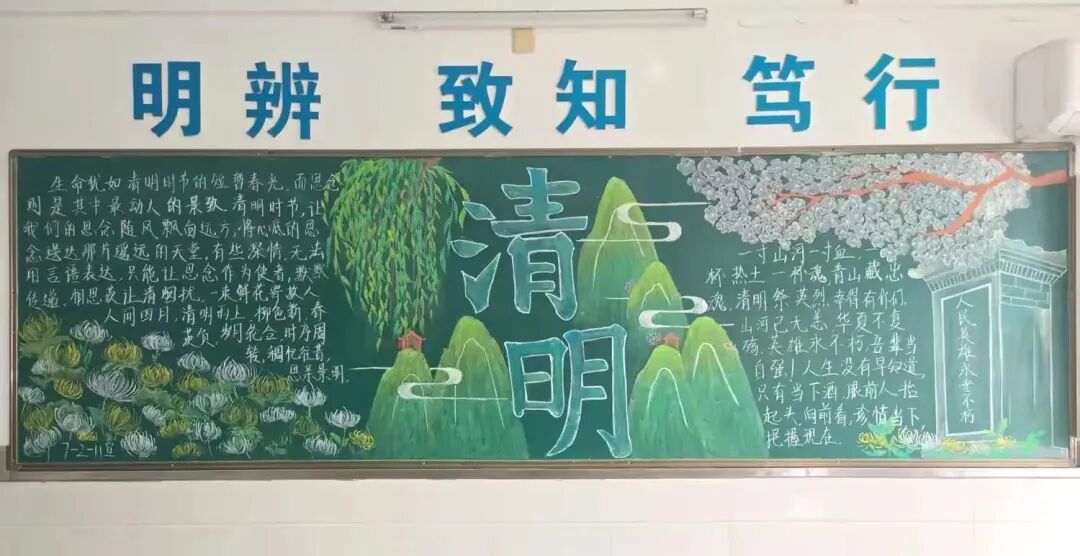 明辨 致知 笃行
清明
生命犹如清明时节的短暂春光,而思念
则是其中最动人的景致.清明时节,让
我们的思念随风飘向远方,将心底的思
念送达那片遥远的天堂,有些深情,无法
用言语表达,只能让思念作为使者,默默
传递.相思莫让清明扰,一束鲜花寄故人
人间四月,清明雨上,柳色新,春
岁月 时序
7-2-11
一寸山河一寸血,一
杯热土一杯魂,青山藏忠
魂,清明祭英烈.幸得有你们,
山河已无恙.华夏不复
殇,英雄永不朽,吾辈当
自强!人生没有早知道,
只有当下酒,眼前人.抬
起头,向前看,珍惜当下
把握现在.
人民英雄永世不朽